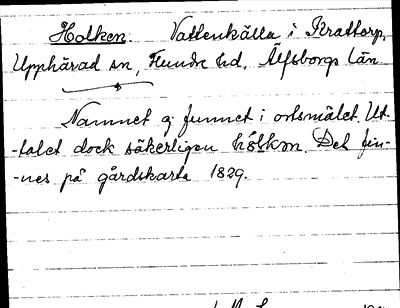 Holken. Vattenkälla i Krattorp,
Upphärad sn, Flundre hd. Älfsborgs län
Namnet ej funnet i ortsmålet. Ut-
-talet dock säkerligen hólkən. Det fin-
-nes på gårdskarta 1829.